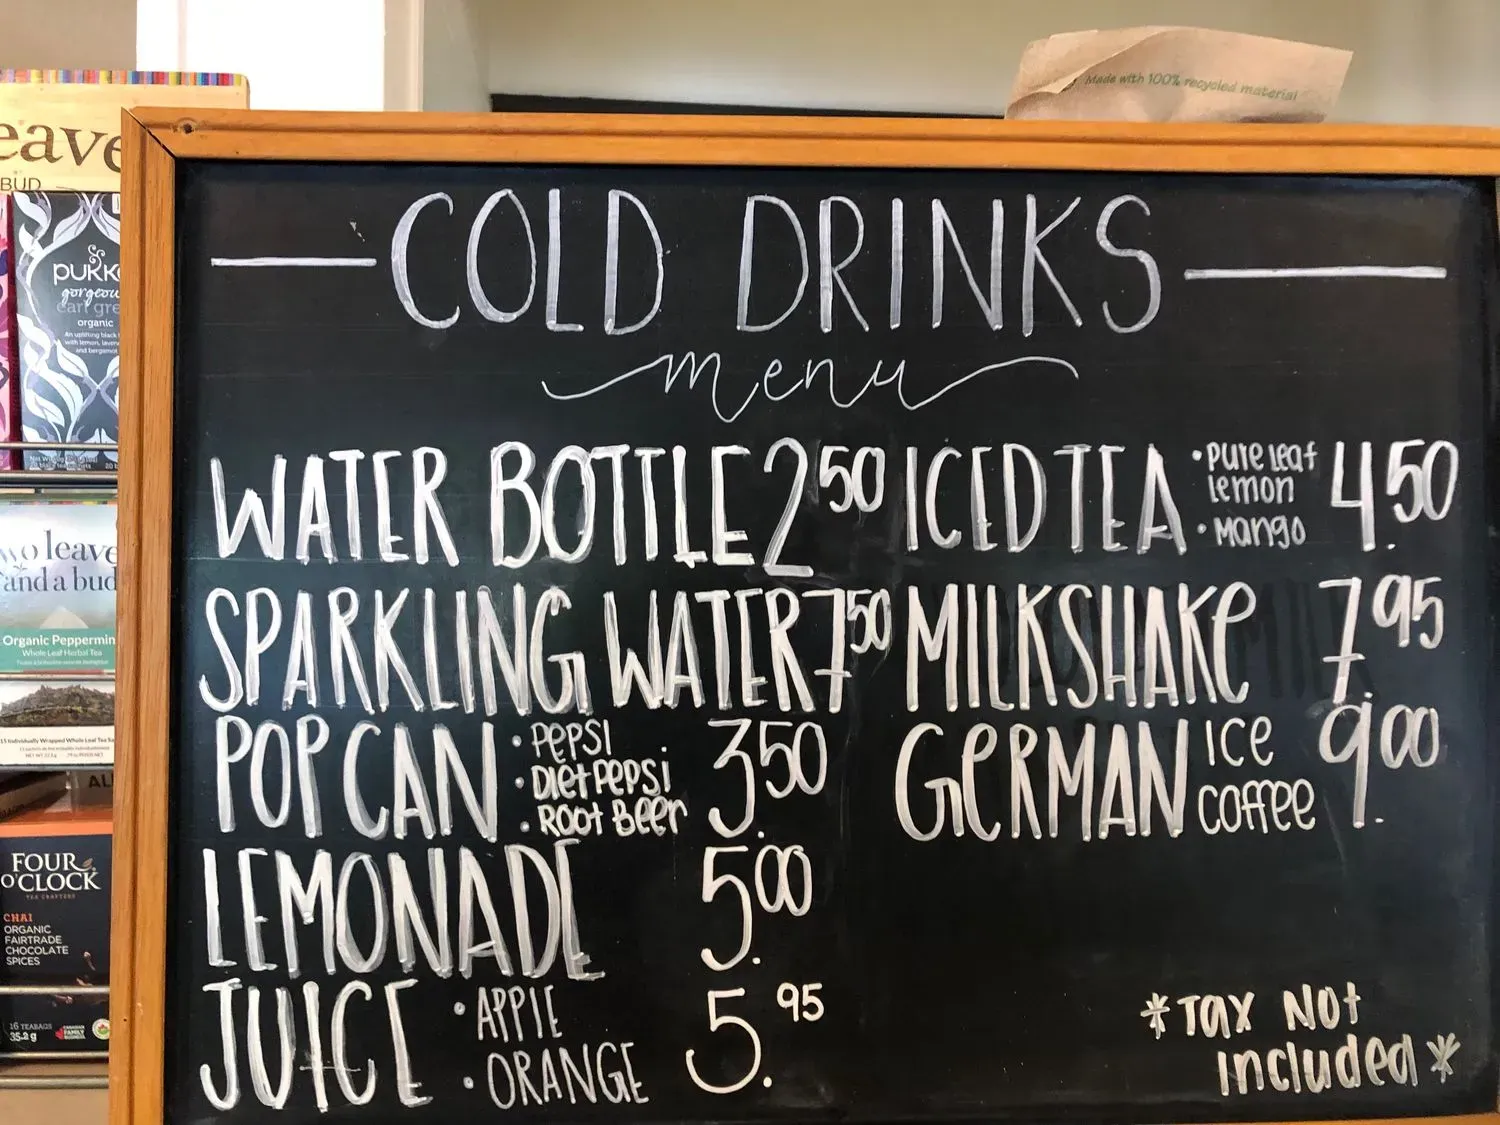 Made with 100% recycled material
COLD DRINKS
menu
WATER BOTTLE 2.50
SPARKLING WATER 7.50
POP CAN • Pepsi 3.50
• Diet Pepsi
• Root Beer
LEMONADE 5.00
JUICE • APPLE 5.95
• ORANGE
ICED TEA • Pure Leaf 4.50
Lemon
• Mango
MILKSHAKE 7.95
GERMAN ICE 9.00
COFFEE
*Tax Not
Included*
eave
BUD
pukk
gorgeou
earl gre
organic
An uplifting black
with lemon, laven
and bergamot
wo leave
and a bud
Organic Peppermin
Whole Leaf Herbal Tea
15 Individually Wrapped Whole Leaf Tea Sa
AL
FOUR
O'CLOCK
TEA CRAFTERS
CHAI
ORGANIC
FAIRTRADE
CHOCOLATE
SPICES
16 TEABAGS
35.2 g
CANADIAN
FAMILY
BUSINESS